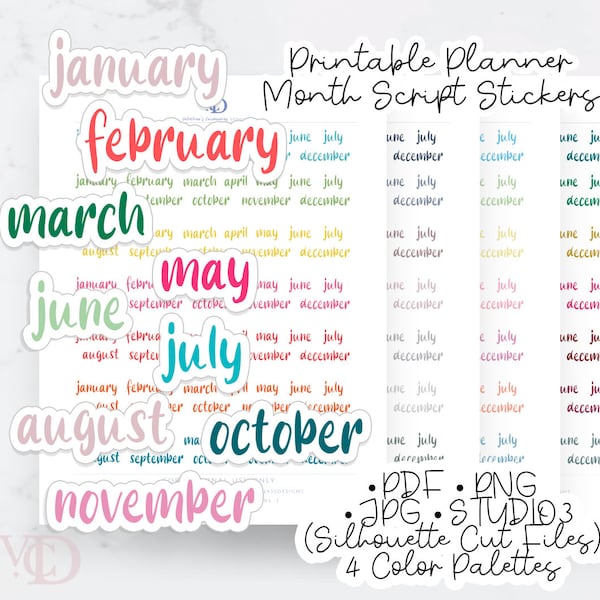 january
february
march
may
june
july
august
october
november
Printable Planner
Month Script Stickers
june july
december
january february march april may june july
august september october november december
january february march april may june july
august september october november december
january february march april may june july
september october november december
january february march april may june july
august september october november december
january february march april may june july
august september october november december
june july
december
june july
december
june july
december
june july
december
june july
december
june july
december
• PDF • PNG
• JPG • STUDIO3
(Silhouette Cut Files)
4 Color Palettes